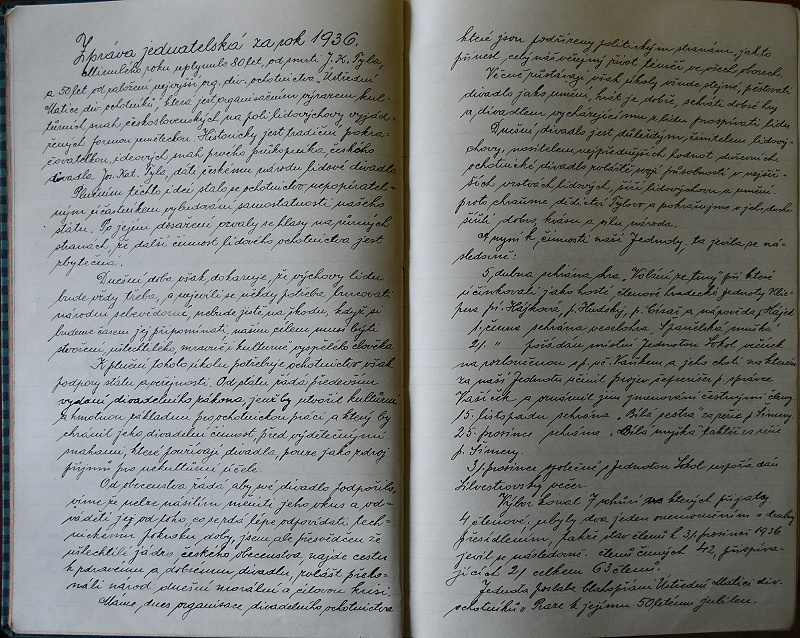 Zpráva jednatelská za rok 1936.
Minulého roku uplynulo 80 let, od smrti J. K. Tyla,
a 50 let od založení nejvyšší org. div. ochotnictva "Ústřední
Matice div. ochotníků", která jest organisačním výrazem kul-
turních snah, československých na poli lidovýchovy vyjád-
řených formou uměleckou. Historicky jest tradiční pokra-
čovatelkou, ideových snah, prvého průkopníka, českého
divadla, Jos. Kat. Tyla, dáti českému národu lidové divadlo.
Plněním těchto ideí stalo se ochotnictvo nepopíratel-
ným účastníkem vybudování samostatnosti našeho
státu. Po jejím dosažení ozvaly se hlasy na různých
stranách, že další činnost lidového ochotnictva jest
zbytečná.
Dnešní doba však, dokazuje, že výchovy lidu
bude vždy třeba, a nejeví-li se někdy potřeba, burcovati
národní sebevědomí, nebude jistě na škodu, když si
budeme časem jej připomínati, naším cílem musí býti
stvoření, ušlechtilého, mravně i kulturně vyspělého člověka
K plnění tohoto úkolu potřebuje ochotnictvo však
podpory státu a veřejnosti. Od státu žádá především
vydání divadelního zákona, jenž by utvořil kulturní
i hmotnou základnu pro ochotnickou práci a který by
chránil jeho divadelní činnost, před výdělečnými
snahami, které používají divadla, pouze jako zdroj
příjmů pro nekulturní účele.
Od obecenstva žádá, aby své divadlo podpořilo,
víme že nelze násilím měniti jeho vkus a od-
váděti jej od toho, co se zdá lépe odpovídati tech-
nickému pokroku doby, jsem ale přesvědčen že
ušlechtilé jádro českého obecenstva, najde cestu
k zdravému a dobrému divadlu, zvlášť překo-
náli národ dnešní morální a citovou krisi.
Máme, dnes organisace divadelního ochotnictva
které jsou podřízeny politickým stranám, jak to
přinesl, celý náš veřejný život téměř ve všech oborech.
Věčně zůstávají však úkoly všude stejné, pěstovati
divadlo jako umění, hrát je dobře, sehráti dobré hry
a divadlem vycházejícímu z lidu prospívati lidu
Dnešní divadlo jest důležitým, činitelem lidový-
chovy, nositelem nejpřednějších hodnot duševních
ochotnické divadlo zvláště svojí působností v nejšir-
ších, vrstvách lidových, šíří lidovýchovu a umění
proto chraňme dědictví Tylovo a pokračujme v jeho duchu
šířiti dobro, krásu a sílu národa.
A nyní k činnosti naší Jednoty, ta jevila se ná-
sledovně:
5. dubna sehrána hra, "Volání ze tmy" při které
účinkovali jako hosté, členové hradecké jednoty Klic-
pera pí. Hájková, p. Hudský, p. Císař a nápověda, Hájek
1. června sehrána veselohra "Španělská muška"
21. " pořádán místní Jednotou Sokol večírek
na rozloučenou sp. vč. Vaňkem a jeho chotí na kterém
za naši Jednotu učinil projev p. správce
Vašíček a oznámil jim jmenování čestnými členy
15. listopadu sehrána "Bílá sestra" za reže p. Šimery
25. prosince sehrána "Bílá myška" taktéž za reže
p. Šimery.
31. prosince společně s Jednotou Sokol uspořádán
Silvestrovský večer.
Výbor konal 7 schůzí na kterých přijaty
4 členové, ubyly dva, jeden onemocněním a druhý
přesídlením, takže stav členů k 31. prosinci 1936
jevil se následovně. členů činných 42, přispíva-
jících 21 celkem 63 členů.
Jednota poslala blahopřání Ústřední Matici div.
ochotníků v Praze k jejímu 50 letému jubileu.